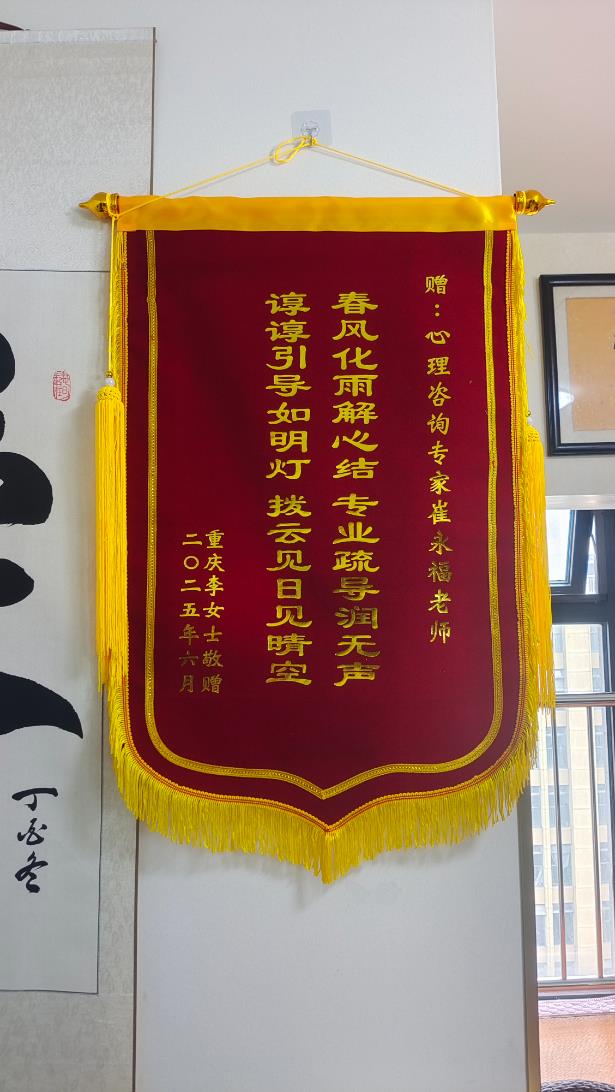 赠：心理咨询专家崔永福老师
春风化雨解心结 专业疏导润无声
谆谆引导如明灯 拨云见日见晴空
重庆李女士敬赠
二〇二五年六月